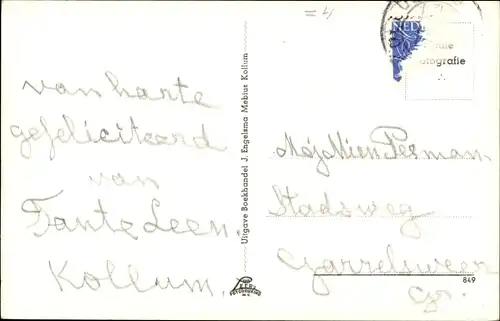 = 4
van harte
gefeliciteerd
van
Tante Leen.
Kollum.
Uitgave Boekhandel J. Engelsma Mebius Kollum
NED
fotografie
∴
Mej. Mien Peeman
Stadsweg
Garrelsweer
Gr.
849